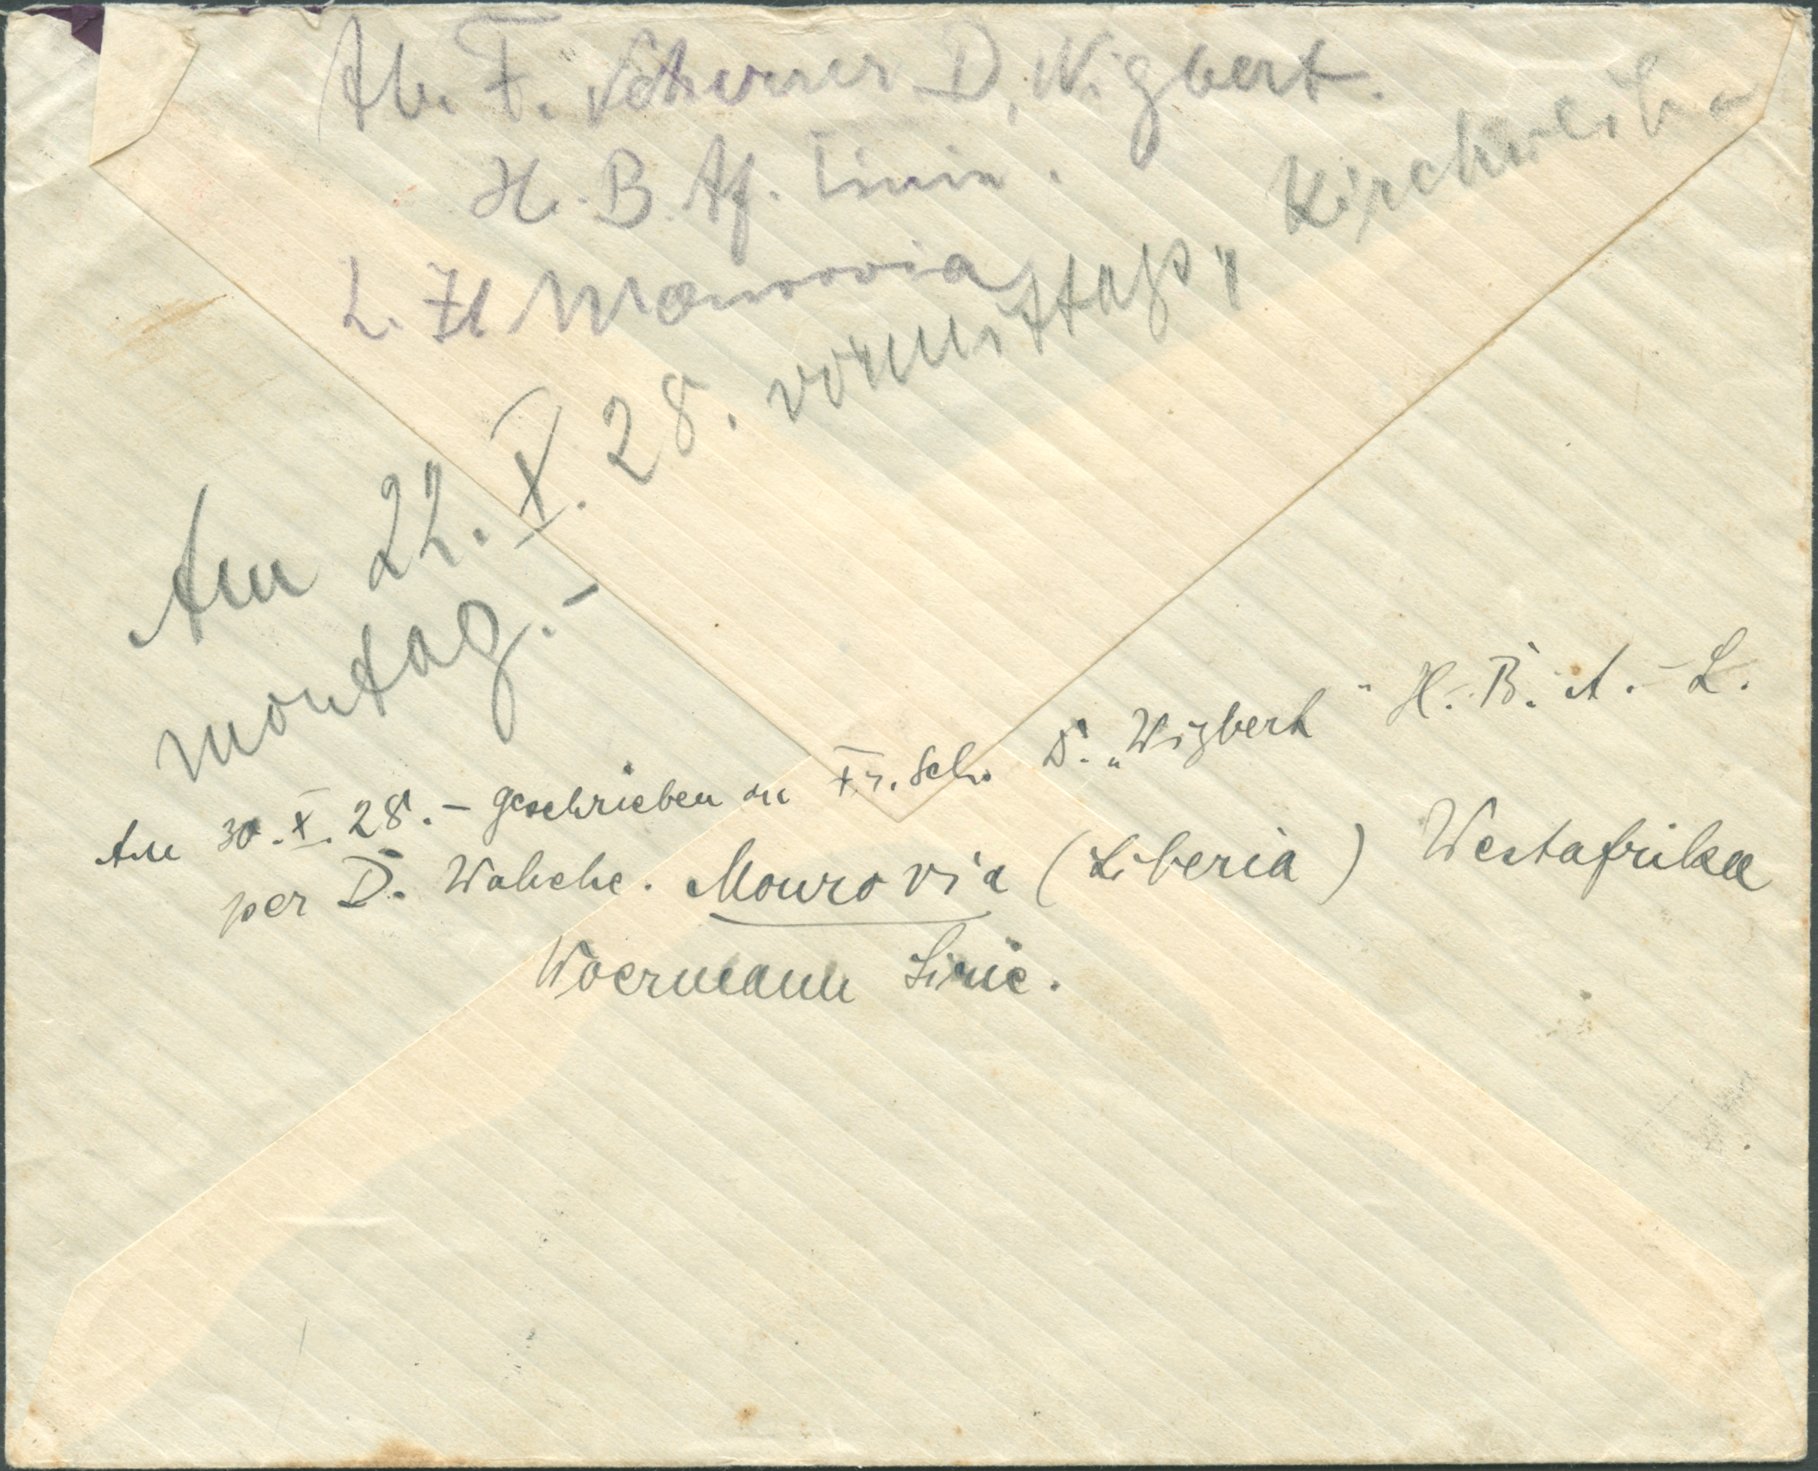 Ab. F. Scherrer D. Wigbert.
H. B. Af. Linie.
L. H Monrovia
Am 22. X. 28. vormittags, Kirchweih-
montag.-
Am 30. X. 28. - geschrieben an Fr. Sch. D. „Wigbert" H. B. A. - L.
per D. Wahehe. Monrovia (Liberia) Westafrika
Woermann Linie.